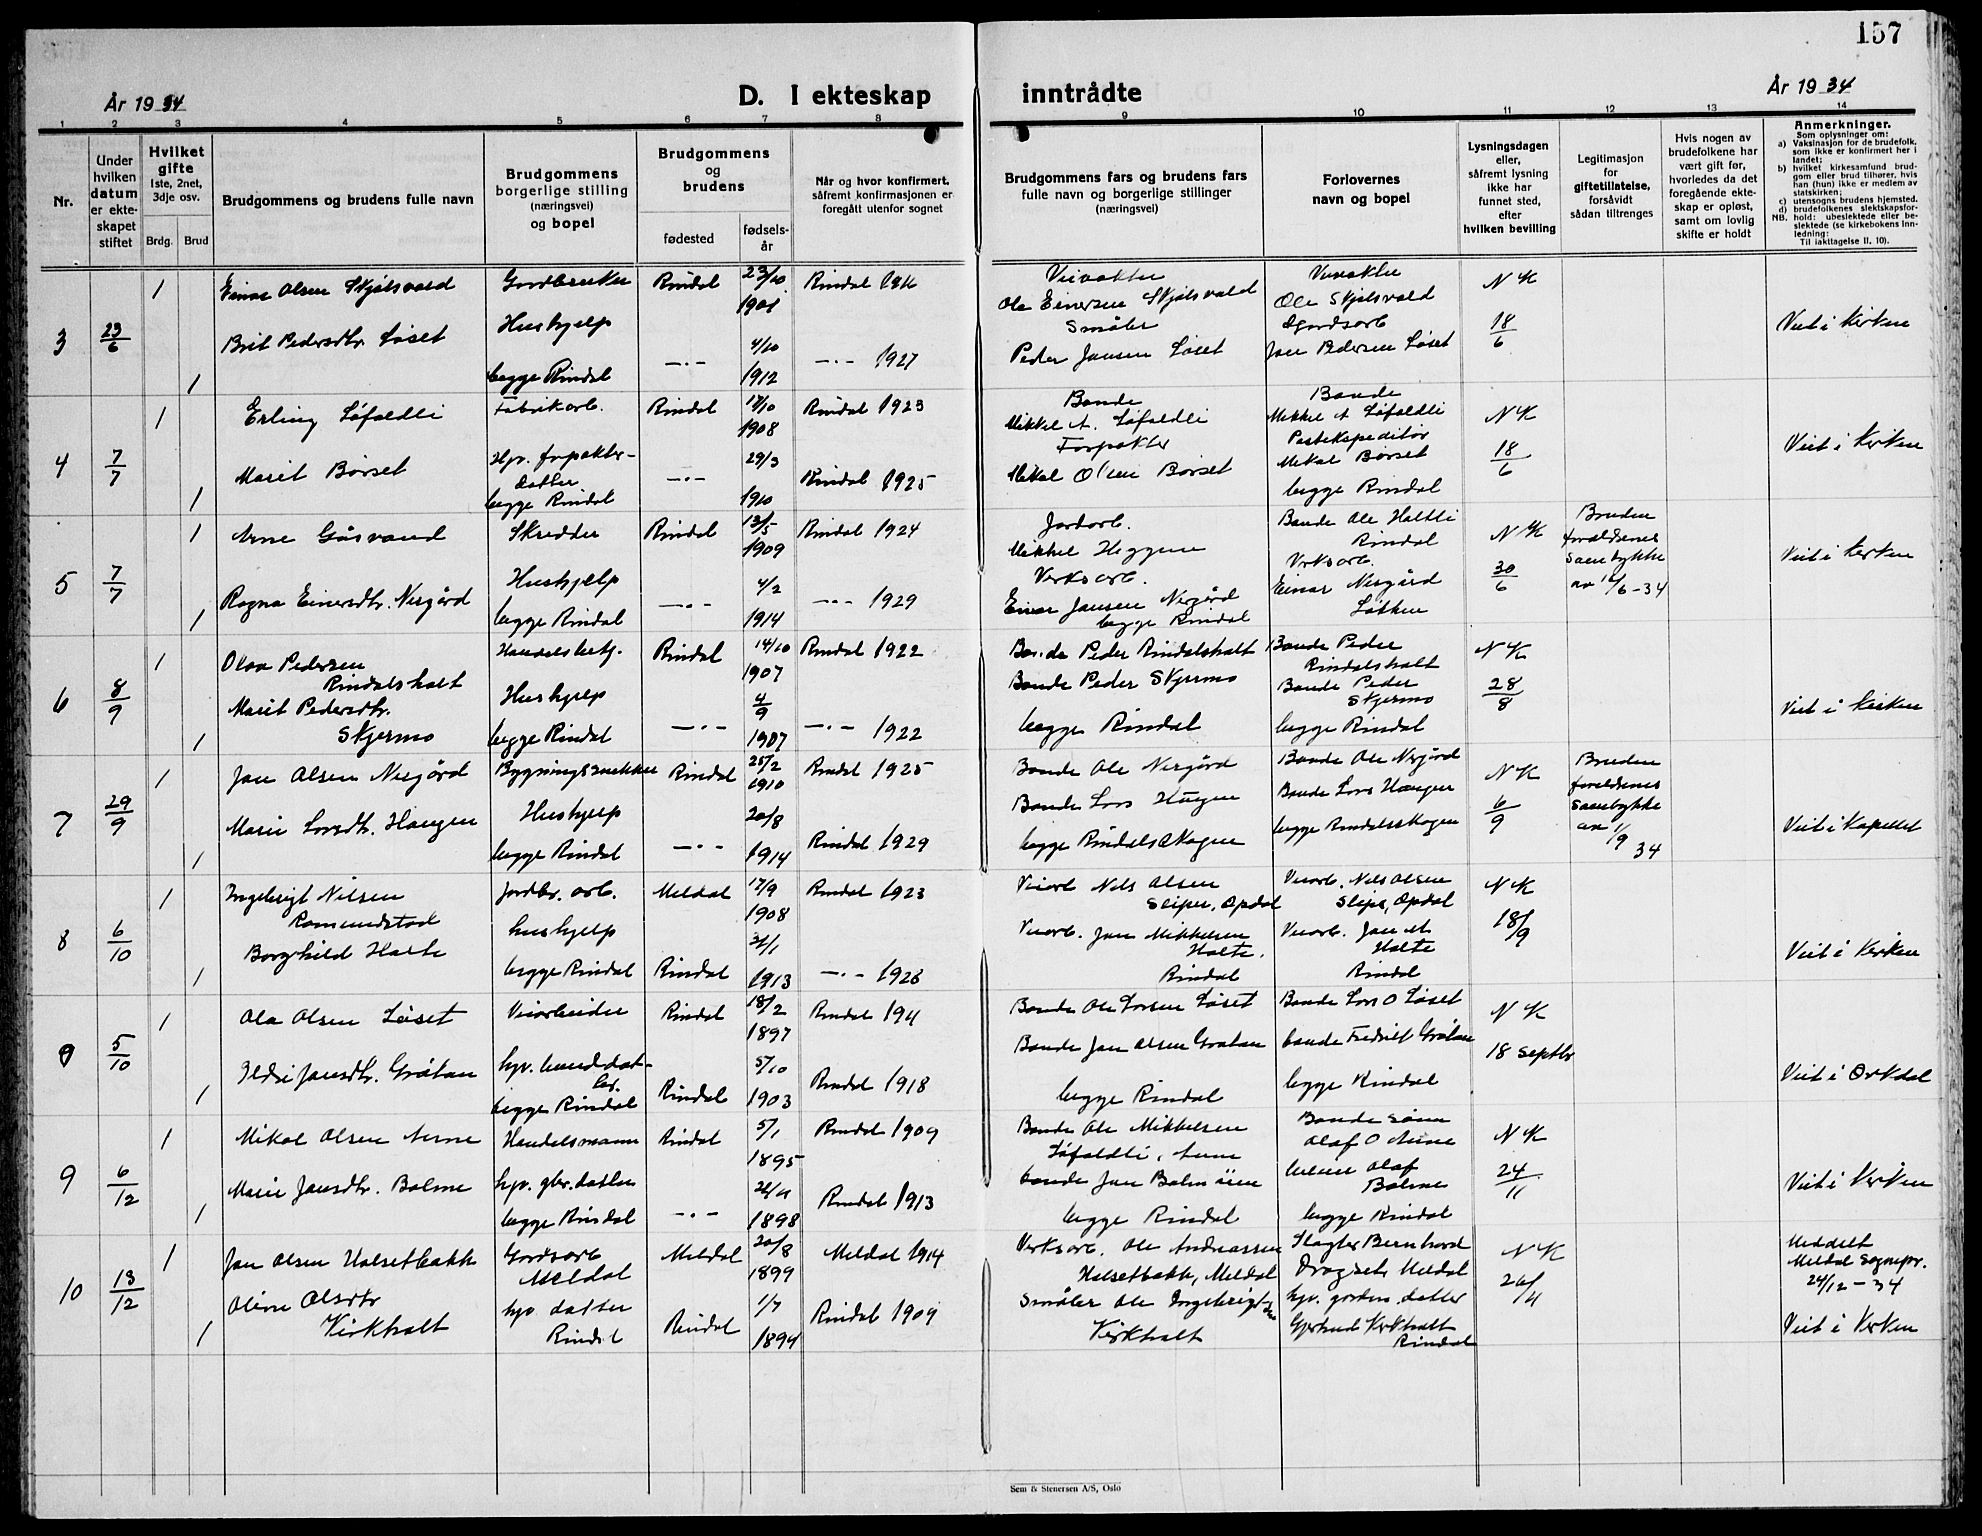 157
År 1934
D. I ekteskap inntrådte
År 1934
1 2 3 4 5 6 7 8 9 10 11 12 13 14
Nr.
Under hvilken datum er ekteskapet stiftet
Hvilket gifte
1ste, 2net, 3dje osv.
Brdg. Brud
Brudgommens og brudens fulle navn
Brudgommens borgerlige stilling (næringsvei) og bopel
Brudgommens og brudens
fødested
fødselsår
Når og hvor konfirmert, såfremt konfirmasjonen er foregått utenfor sognet
Brudgommens fars og brudens fars fulle navn og borgerlige stillinger (næringsvei)
Forlovernes navn og bopel
Lysningsdagen eller, såfremt lysning ikke har funnet sted, efter hvilken bevilling
Legitimasjon for giftetillatelse, forsåvidt sådan tiltrenges
Hvis nogen av brudefolkene har vært gift før, hvorledes da det foregående ekteskap er opløst, samt om lovlig skifte er holdt
Anmerkninger.
Som oplysninger om:
a) Vaksinasjon for de brudefolk, som ikke er konfirmert her i landet;
b) hvilket kirkesamfund brudgom eller brud tilhører, hvis han (hun) ikke er medlem av statskirken;
c) utensogns brudens hjemsted.
d) brudefolkenes slektskapsforhold: ubeslektede eller beslektede (se kirkebokens innledning:
NB. Til iakttagelse II, 10).
3 23/6 1 Einar Olsen Skjølsvold Gardbruker Rindal 23/10 1901 Rindal Veivokter Ole Einersen Skjølsvold Ole Skjølsvold N K
1 Brit Pedersdtr. Løset Hushjelp begge Rindal —"— 4/10 1912 —"— 1927 Småbr Peder Jansen Løset Gardsarb Jon Pedersen Løset 18/6 Viet i Kirken
4 7/7 1 Erling Løfaldli Fabrikarb. Rindal 1908 Rindal 1923 Bonde Mikkel A. Løfaldli Bonde Mikkel A Løfaldli N K
1 Marit Børset Hjv. forpakterdatter begge Rindal —"— 29/3 1910 Rindal 1925 Forpakter Mikal Olsen Børset Postekspeditør Mikal Børset begge Rindal 18/6 Viet i Kirken
5 7/7 1 Arne Gåsvand Skredder Rindal 13/5 1909 Rindal 1924 Jordarb. Mikkel Heggem Bonde Ole Holtli Rindal N K Bruden foreldrenes samtykke
1 Ragna Einersdtr. Nergård Hushjelp begge Rindal —"— 4/2 1914 —"— 1929 Verksarb. Einar Jansen Nergård begge Rindal Verksarb. Einar Nergård Løkken 30/6 Viet i Kirken
6 8/9 1 Olav Pedersen Rindalsholt Handelsbetj. Rindal 14/10 1907 Rindal 1922 Bonde Peder Rindalsholt Bonde Peder Rindalsholt N K
1 Marit Pedersdtr. Skjermo Hushjelp begge Rindal —"— 4/9 1907 —"— 1922 Bonde Peder Skjermo begge Rindal Bonde Peder Skjermo begge Rindal 28/8 Viet i Kirken
7 29/9 1 Jon Olsen Nergård Bygningssnekker Rindal 25/2 1910 Rindal 1925 Bonde Ole Nergård Bonde Ole Nergård N K Bruden foreldrenes samtykke av 1/9 34
1 Marie Larsdtr. Haugen Hushjelp begge Rindal —"— 20/8 1914 Rindal 1929 Bonde Lars Haugen begge Rindalsskogen Bonde Lars Haugen begge Rindalsskogen 6/9 Viet i Kapellet
8 6/10 1 Ingebrigt Nilsen Romundstad Jordbr. arb. Meldal 17/9 1908 Rindal 1923 Veiarb Nils Olsen Sliper, Opdal Veiarb. Nils Olsen Slipe, Opdal N K
1 Borghild Holte hushjelp begge Rindal Rindal 1913 —"— 1928 Veiarb. Jon Mikkelsen Holte. Rindal Veiarb. Jon M Holte Rindal 18/9 Viet i Kirken
5/10 1 Ola Olsen Løset Veiarbeider Rindal 18/2 1897 Rindal Bonde Ole Larsen Løset Bonde Lars O Løset N K
1 Ildri Jansdtr. Gråtan hjv. bonddatter begge Rindal Rindal 5/10 1903 Rindal 1918 Bonde Jon Olsen Gråtan begge Rindal bonde Fredrik Gråtan begge Rindal 18 Septbr Viet i Orkdal
9 6/12 1 Mikal Olsen Aune Handelsmann Rindal 5/1 1895 Rindal 1909 Bonde Ole Mikkelsen Løfaldli, Aune Bonde sønn Olaf O Aune N K
1 Marie Jansdtr. Bolme hjv. gbr. datter begge Rindal —"— 1898 Rindal 1913 bonde Jon Bolme begge Rindal Olaf Bolme begge Rindal 24/11 Viet i Kirken
10 13/12 1 Jon Olsen Halsetbakk Gardsarb Meldal Meldal 20/8 1899 Meldal 1914 Verksarb. Ole Andreassen Halsetbakk, Meldal Slagter Bernhard Dragset Meldal N K Meddelt Meldal Sognepr. 24/12 – 34
1 Oline Olsdtr Kirkholt hjv. datter Rindal Rindal 1/7 1894 Rindal 1909 Småbr Ole Ingebrigtsen Kirkholt hjv. gårdm. datter Gjertrud Kirkholt Rindal 26/11 Viet i Kirken
Sem & Stenersen A/S, Oslo